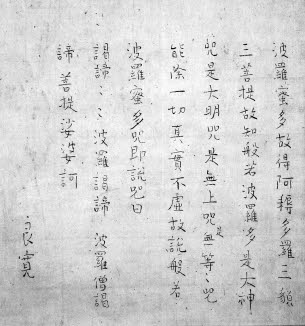 波羅蜜多故得阿耨多羅三藐
三菩提故知般若波羅多是大神
咒是大明咒是無上咒是無等〻咒
能除一切真實不虛故說般若
波羅蜜多咒即說咒曰
揭諦〻〻波羅揭諦 波羅僧揭
諦 菩提娑婆訶
良寬